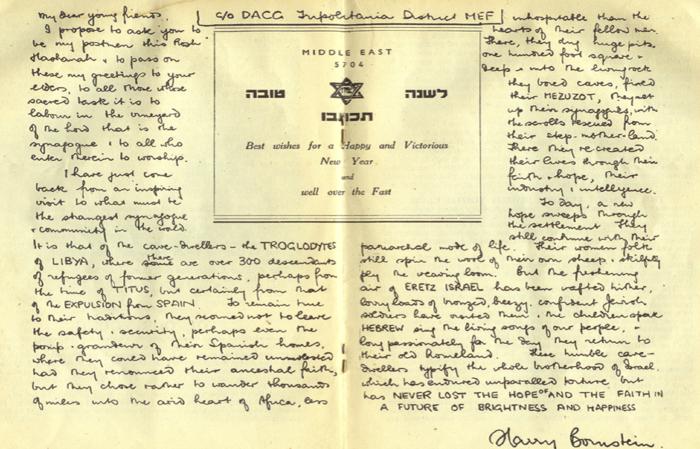 c/o DACG Tripolitania District MEF
My dear young friends,
I propose to ask you to
be my postmen this Rosh
Hashanah & to pass on
these my greetings to your
elders, to all those whose
sacred task it is to
labour in the vineyard
of the Lord that is the
synagogue & to all who
enter therein to worship.
I have just come
back from an inspiring
visit to what must be
the strangest synagogue
& community in the world.
It is that of the cave-dwellers - the TROGLODYTES
of LIBYA, where there are over 300 descendants
of refugees of former generations, perhaps from
the time of TITUS, but certainly from that
of the EXPULSION from SPAIN. To remain true
to their traditions, they scorned not to leave
the safety & security, perhaps even the
pomp & grandeur of their Spanish homes,
where they could have remained unmolested
had they renounced their ancestral faith,
but they chose rather to wander thousands
of miles into the arid heart of Africa, less
MIDDLE EAST
5704
לשנה טובה
תכתבו
Best wishes for a Happy and Victorious
New Year
and
well over the Fast
inhospitable than the
hearts of their fellow men.
There, they dug huge pits,
one hundred foot square &
deep & into the living rock
they bored caves, fixed
their MEZUZOT, they set
up their synagogues, with
the scrolls rescued from
their step-mother-land.
There they re-created
their lives through their
faith & hope, their
industry & intelligence.
To day, a new
hope sweeps through
the settlement. They
still continue with their
patriarchal mode of life. Their women folk
still spin the wool of their own sheep & skilfully
ply the weaving loom. But the freshening
air of ERETZ ISRAEL has been wafted hither,
lorry loads of bronzed, breezy, confident Jewish
soldiers have visited them & the children speak
HEBREW sing the living songs of our people, &
long passionately for the day they return to
their old homeland. These humble cave-
dwellers typify the whole brotherhood of Israel
which has endured unparalled torture, but
has NEVER LOST THE HOPE OF AND THE FAITH IN
A FUTURE OF BRIGHTNESS AND HAPPINESS
Harry Bornstein.